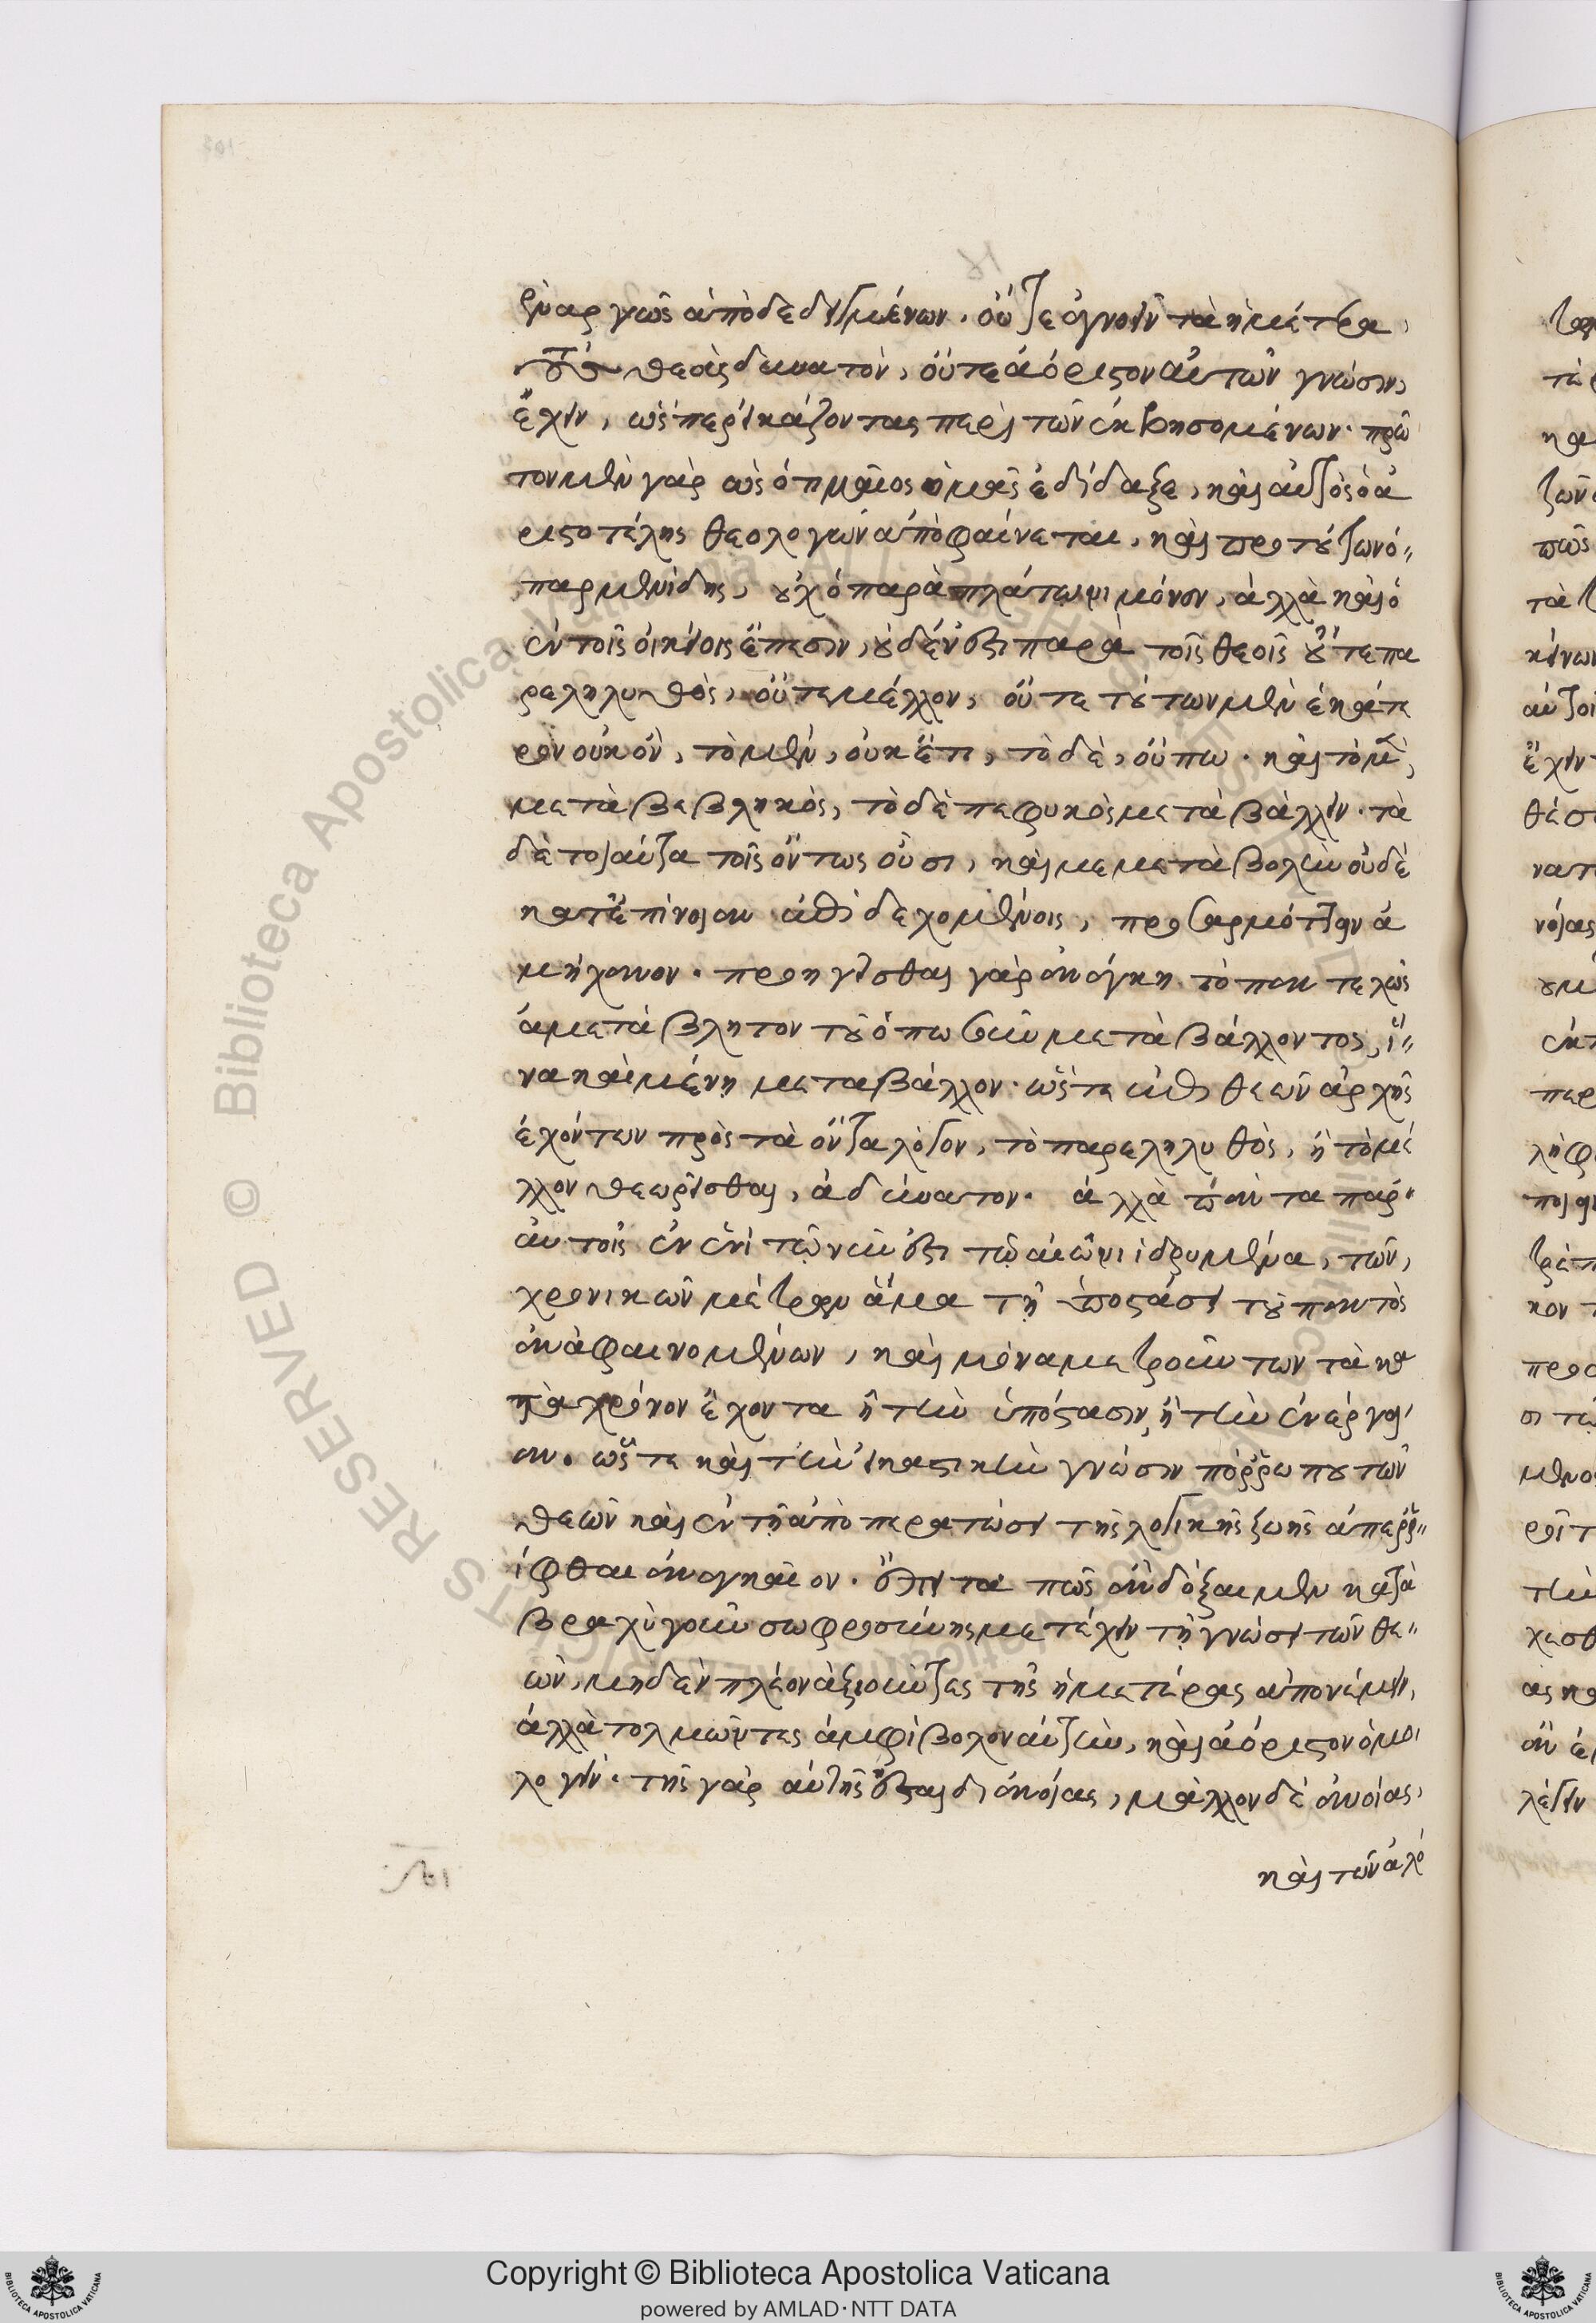 ἐναργῶς ἀποδεδειγμένων. οὔτε ἀγνοεῖν τὰ ἡμέτερα,
τοὺς θεοὺς δυνατόν, οὔτε ἀόριστον αὐτῶν γνῶσιν,
ἔχειν, ὥσπερ εἰκάζοντας περὶ τῶν ἐκβησομένων. πρῶ
τον μὲν γὰρ ὡς ὁ τίμαιος ἡμᾶς ἐδίδαξε, καὶ αὐτὸς ὁ ἀ
ριστοτέλης θεολογῶν ἀποφαίνεται, καὶ πρὸ τούτων ὁ
παρμενίδης, οὐχ ὁ παρὰ πλάτωνι μόνον, ἀλλὰ καὶ ὁ
ἐν τοῖς οἰκείοις ἔπεσιν, οὐδέν ἐστι παρὰ τοῖς θεοῖς οὔτε πα
ρεληλυθός, οὔτε μέλλον, οὔτε τούτων μὲν ἑκάτε
ρον οὐκ ὄν, τὸ μὲν, οὐκ ἔτι, τὸ δὲ, οὔπω. καὶ τὸ μὲν,
μεταβεβληκὸς, τὸ δὲ πεφυκὸς μεταβάλλειν. τὰ
δὲ τοιαῦτα τοῖς ὄντως οὖσι, καὶ με μεταβολὴν οὐδὲ
κατ' ἐπίνοιαν ἐπιδεχομένοις, προσαρμόττειν ἀ
μήχανον. προηγεῖσθαι γὰρ ἀνάγκη τὸ παντελῶς
ἀμετάβλητον τοῦ ὁπωσοῦν μεταβάλλοντος, ἵ
να καὶ μένῃ μεταβάλλον. ὥστε ἐπὶ θεῶν ἀρχῆς
ἐχόντων πρὸς τὰ ὄντα λόγον, τὸ παρεληλυθὸς, ἢ τὸ μέ
λλον θεωρεῖσθαι, ἀδύνατον. ἀλλὰ πάντα παρ'
αὐτοῖς ἐν ἑνὶ τῷ νῦν ἐστι τῷ αἰῶνι ἱδρυμένα, τῶν,
χρονικῶν μέτρων ἅμα τῇ ὑποστάσει τοῦ παντὸς
ἀναφαινομένων, καὶ μόνα μετρούντων τὰ κα
τὰ χρόνον ἔχοντα ἢ τὴν ὑπόστασιν, ἢ τὴν ἐνέργει
αν. ὥστε καὶ τὴν εἰκαστικὴν γνῶσιν πόρρω που τῶν
θεῶν καὶ ἐν τῇ ἀποπερατώσει τῆς λογικῆς ζωῆς ἀπερρ
ίφθαι ἀναγκαῖον. ἔπειτα πῶς ἂν δόξαιμεν κατὰ
βραχὺ γοῦν σωφροσύνης μετέχειν τῇ γνώσει τῶν θε
ῶν, μηδὲν πλέον ἀξιοῦντες τῆς ἡμετέρας ἀπονέμειν,
ἀλλὰ τολμῶντες ἀμφίβολον αὐτὴν, καὶ ἀόριστον ὁμο
λογεῖν. τῆς γὰρ αὐτῆς ἔσται διανοίας, μᾶλλον δὲ ἀνοίας,
καὶ τῶν ἀλό